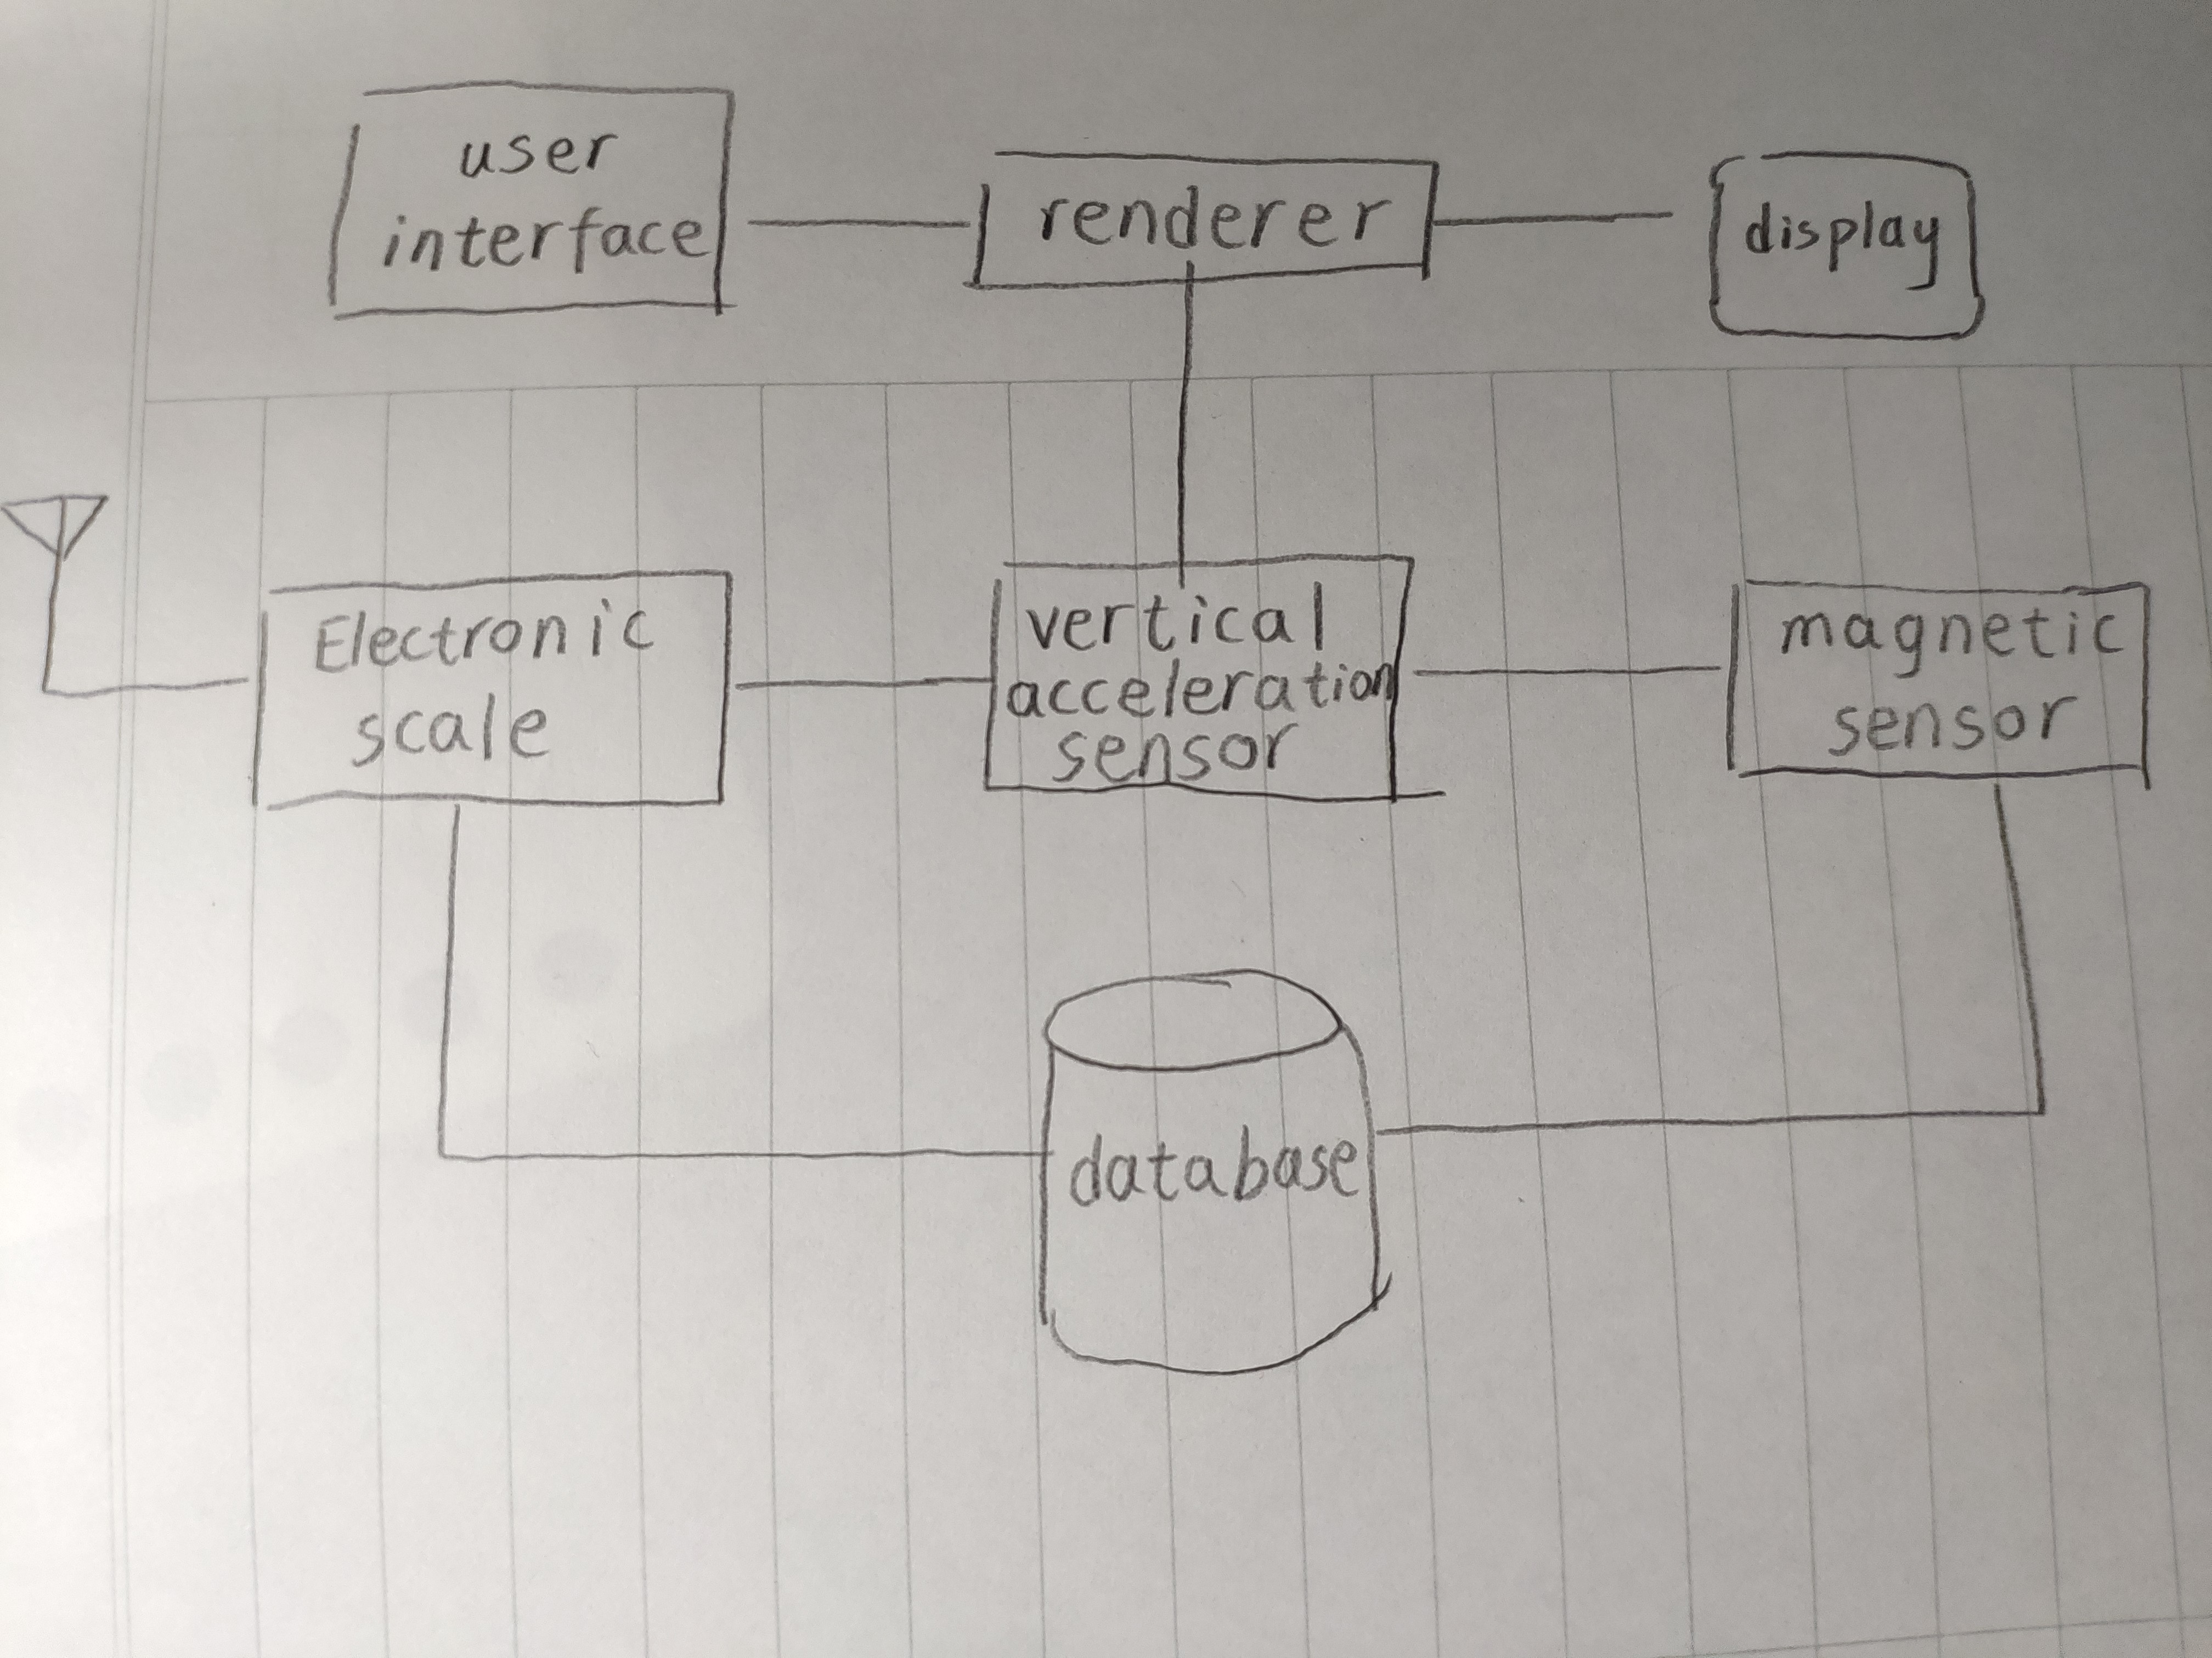 user
interface
renderer
display
Electronic
scale
vertical
acceleration
sensor
magnetic
sensor
database